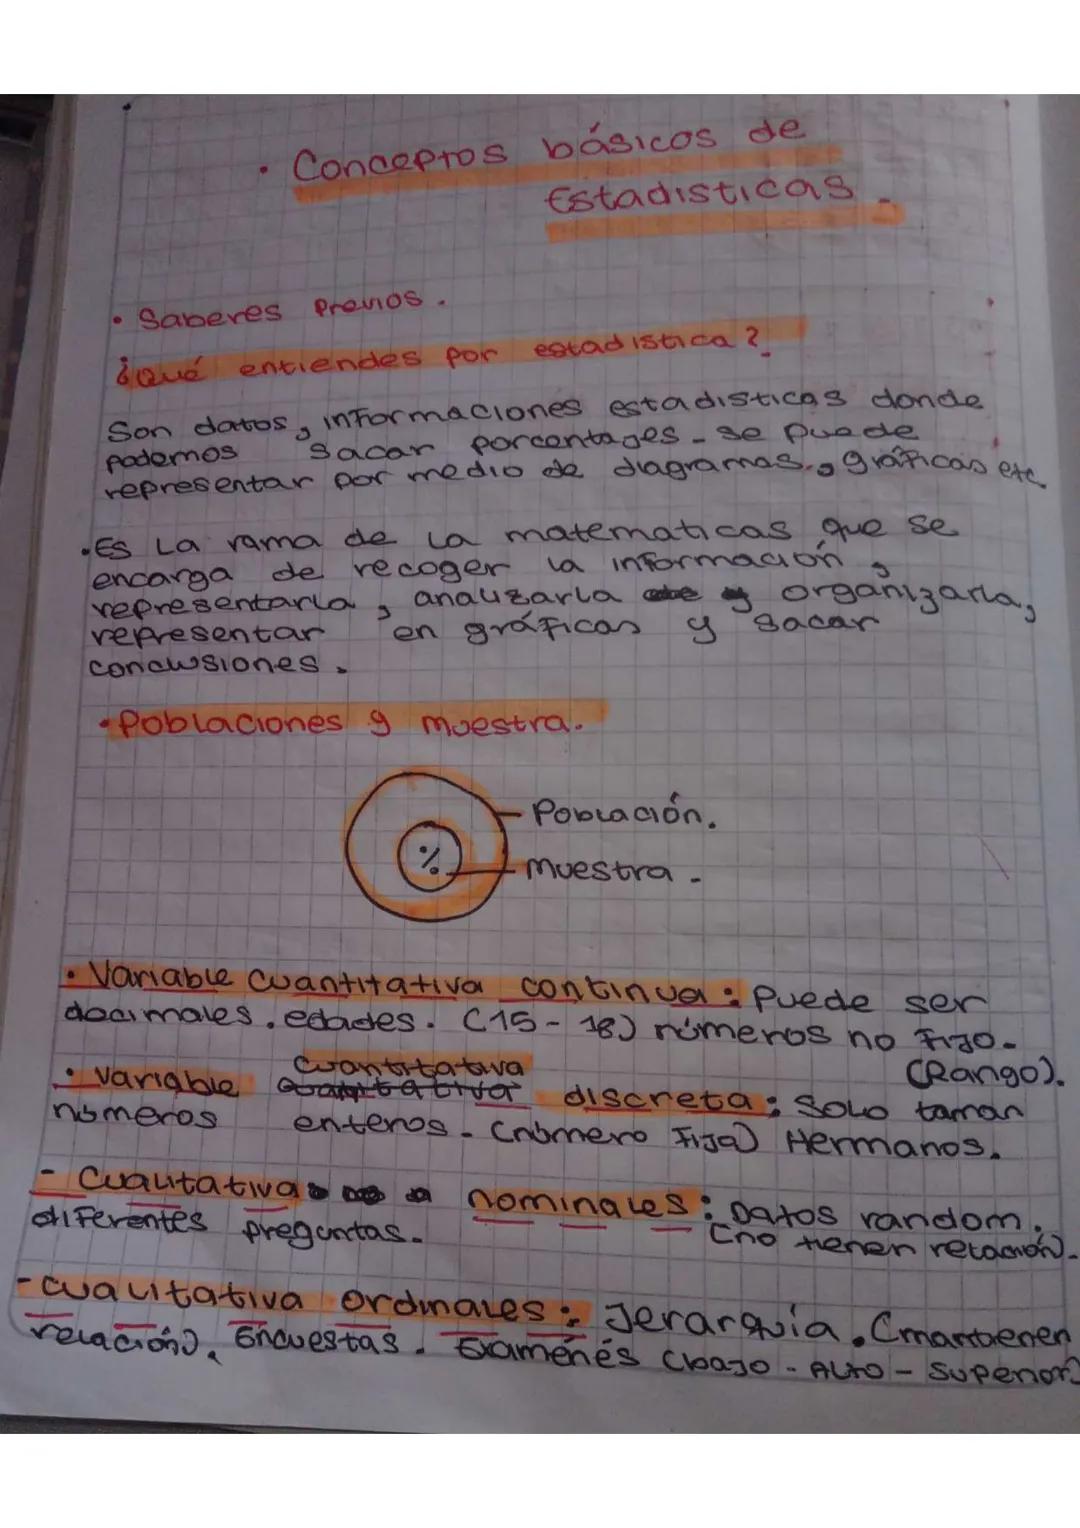 • Conceptos básicos de
Estadisticas.
• Saberes Previos.
¿Qué entiendes por estadistica?
Son datos, informaciones estadisticas donde
podemos sacar porcentages. se puede
representar por medio de diagramas, gráficas etc.
• Es La rama de la matematicas que se
encarga de recoger la información,
representarla, analizarla y organizarla,
representar en gráficas y sacar
conclusiones.
• Poblaciones y muestra.
Población.
%
muestra.
• Variable cuantitativa continua: puede ser
decimales. edades. (15-18) números no Fijo.
(Rango).
cuantitativa
• variable discreta: solo toman
números enteros. (número Fija) Hermanos.
- Cualitativa nominales: Datos random.
diferentes preguntas. (no tienen relación).
- cualitativa ordinales: Jerarquía. (mantienen
relación). Encuestas. Examenés (bajo - Alto - Superior)